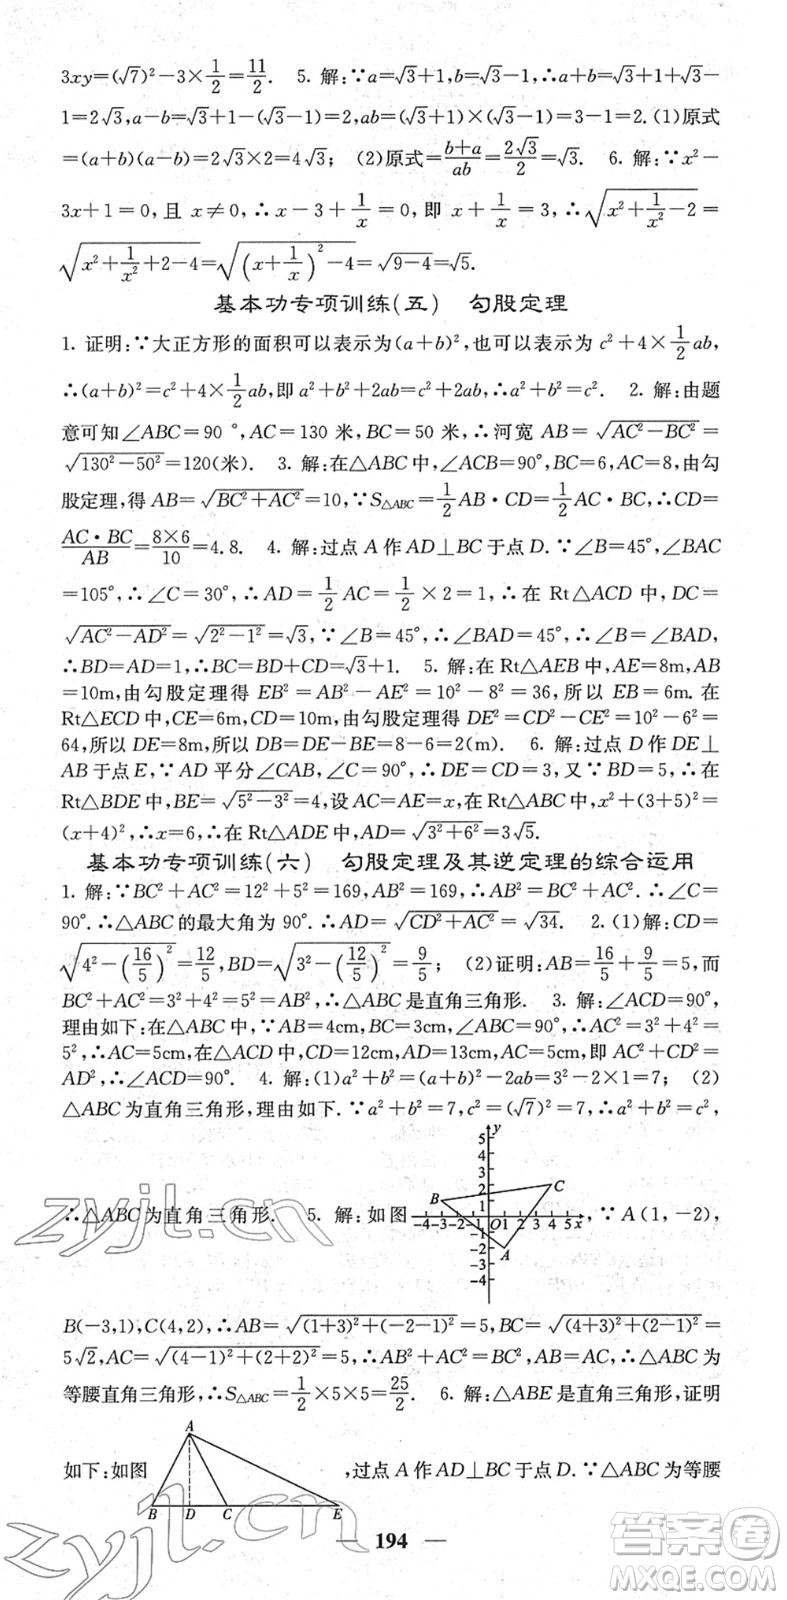 3xy=(√7)²-3×1/2=11/2. 5. 解:∵a=√3+1,b=√3-1,∴a+b=√3+1+√3-
1=2√3,a-b=√3+1-(√3-1)=2,ab=(√3+1)×(√3-1)=3-1=2.(1)原式
=(a+b)(a-b)=2√3×2=4√3; (2)原式=(b+a)/ab=2√3/2=√3. 6. 解:∵x²-
3x+1=0,且 x≠0,∴x-3+1/x=0,即 x+1/x=3,∴√(x²+1/x²-2)=
√(x²+1/x²+2-4)=√((x+1/x)²-4)=√(9-4)=√5.
基本功专项训练(五) 勾股定理
1. 证明:∵大正方形的面积可以表示为(a+b)²,也可以表示为 c²+4×1/2ab,
∴(a+b)²=c²+4×1/2ab,即 a²+b²+2ab=c²+2ab,∴a²+b²=c². 2. 解:由题
意可知∠ABC=90°,AC=130 米,BC=50 米,∴河宽 AB=√(AC²-BC²)=
√(130²-50²)=120(米). 3. 解:在△ABC中,∠ACB=90°,BC=6,AC=8,由勾
股定理,得 AB=√(BC²+AC²)=10,∵S△ABC=1/2AB·CD=1/2AC·BC,∴CD=
AC·BC/AB=8×6/10=4.8. 4. 解:过点 A 作 AD⊥BC 于点 D.∵∠B=45°,∠BAC
=105°,∴∠C=30°,∴AD=1/2AC=1/2×2=1,∴在 Rt△ACD 中,DC=
√(AC²-AD²)=√(2²-1²)=√3,∵∠B=45°,∴∠BAD=45°,∴∠B=∠BAD,
∴BD=AD=1,∴BC=BD+CD=√3+1. 5. 解:在Rt△AEB中,AE=8m,AB
=10m,由勾股定理得 EB²=AB²-AE²=10²-8²=36,所以 EB=6m. 在
Rt△ECD中,CE=6m,CD=10m,由勾股定理得 DE²=CD²-CE²=10²-6²=
64,所以 DE=8m,所以 DB=DE-BE=8-6=2(m). 6. 解:过点 D 作 DE⊥
AB于点E,∵AD 平分∠CAB,∠C=90°,∴DE=CD=3,又∵BD=5,∴在
Rt△BDE中,BE=√(5²-3²)=4,设 AC=AE=x,在 Rt△ABC 中,x²+(3+5)²=
(x+4)²,∴x=6,∴在 Rt△ADE 中,AD=√(3²+6²)=3√5.
基本功专项训练(六) 勾股定理及其逆定理的综合运用
1. 解:∵BC²+AC²=12²+5²=169,AB²=169,∴AB²=BC²+AC².∴∠C=
90°.∴△ABC的最大角为 90°.∴AD=√(CD²+AC²)=√34. 2.(1)解:CD=
√(4²-(16/5)²)=12/5,BD=√(3²-(12/5)²)=9/5; (2)证明:AB=16/5+9/5=5,而
BC²+AC²=3²+4²=5²=AB²,∴△ABC是直角三角形. 3. 解:∠ACD=90°,
理由如下:在△ABC中,∵AB=4cm,BC=3cm,∠ABC=90°,∴AC²=3²+4²=
5²,∴AC=5cm,在△ACD中,CD=12cm,AD=13cm,AC=5cm,即 AC²+CD²=
AD²,∴∠ACD=90°. 4. 解:(1)a²+b²=(a+b)²-2ab=3²-2×1=7; (2)
△ABC为直角三角形,理由如下.∵a²+b²=7,c²=(√7)²=7,∴a²+b²=c²,
∴△ABC为直角三角形. 5. 解:如图
y
5
4
3
2
1
B
C
-4-3-2-1 O 1 2 3 4 5 x
-1
-2
A
-3
-4
,∵A(1,-2),
B(-3,1),C(4,2),∴AB=√((1+3)²+(-2-1)²)=5,BC=√((4+3)²+(2-1)²)=
5√2,AC=√((4-1)²+(2+2)²)=5,∴AB²+AC²=BC²,AB=AC,∴△ABC 为
等腰直角三角形,∴S△ABC=1/2×5×5=25/2. 6. 解:△ABE是直角三角形,证明
如下:如图
A
B D C E
,过点 A 作 AD⊥BC 于点 D.∵△ABC 为等腰
— 194 —
zyjl.cn
zyjl.cn
答案圈
MXQE.COM